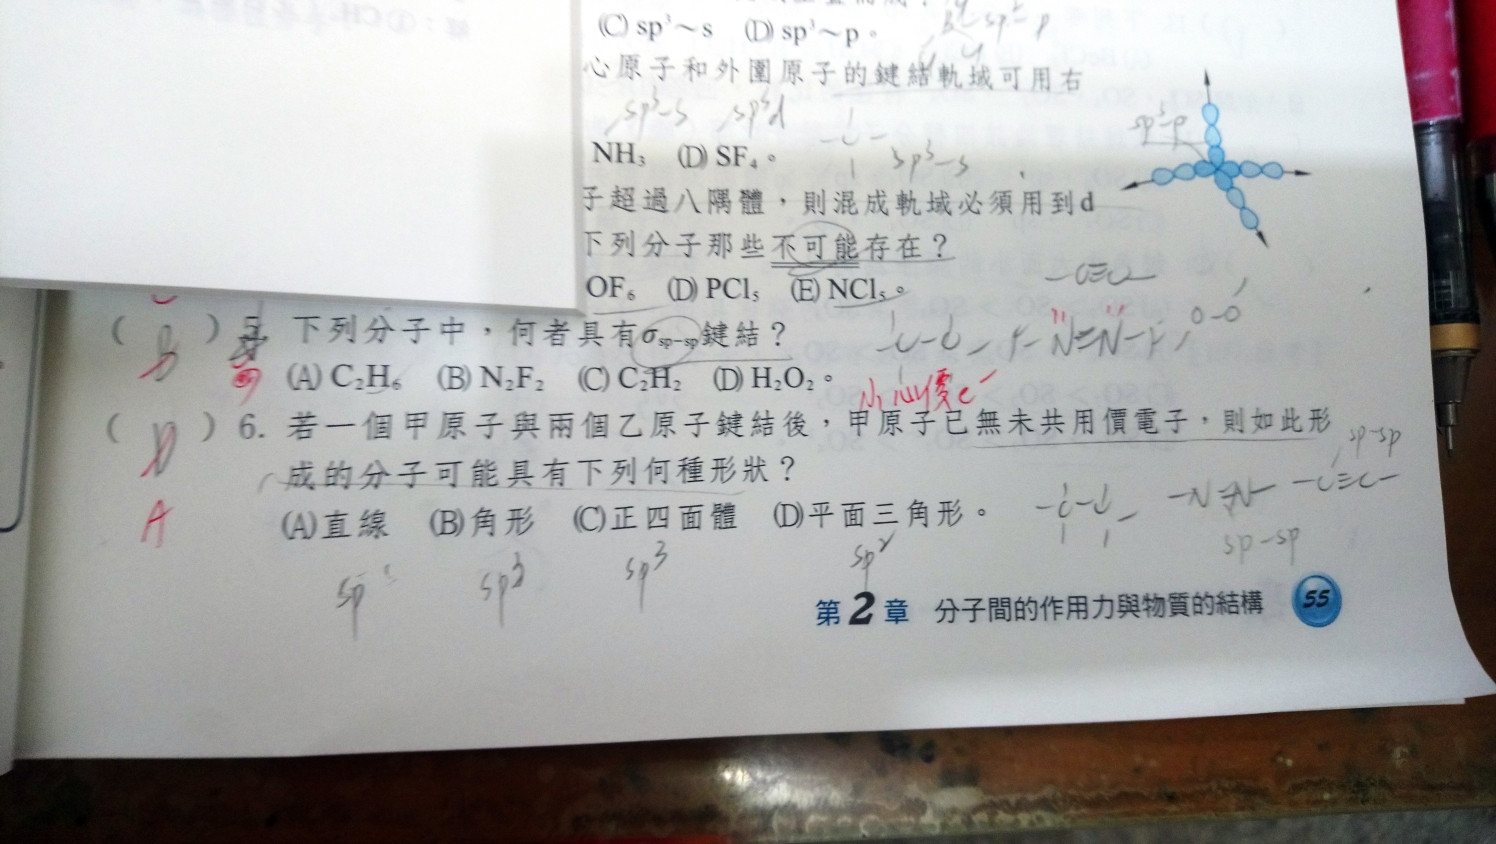 (C) sp³～s (D) sp³～p。
心原子和外圍原子的鍵結軌域可用右
sp³-s sp³d
sp³-p
NH₃ (D) SF₄。
sp³-s
子超過八隅體，則混成軌域必須用到d
下列分子那些不可能存在？
-C≡C-
OF₆ (D) PCl₅ (E) NCl₅。
( B ) 5. 下列分子中，何者具有σsp-sp鍵結？
(A) C₂H₆ (B) N₂F₂ (C) C₂H₂ (D) H₂O₂。
小心價e⁻
( D ) 6. 若一個甲原子與兩個乙原子鍵結後，甲原子已無未共用價電子，則如此形
sp-sp
成的分子可能具有下列何種形狀？
A
(A)直線 (B)角形 (C)正四面體 (D)平面三角形。
sp-sp
sp sp³ sp³ sp²
第2章 分子間的作用力與物質的結構 55